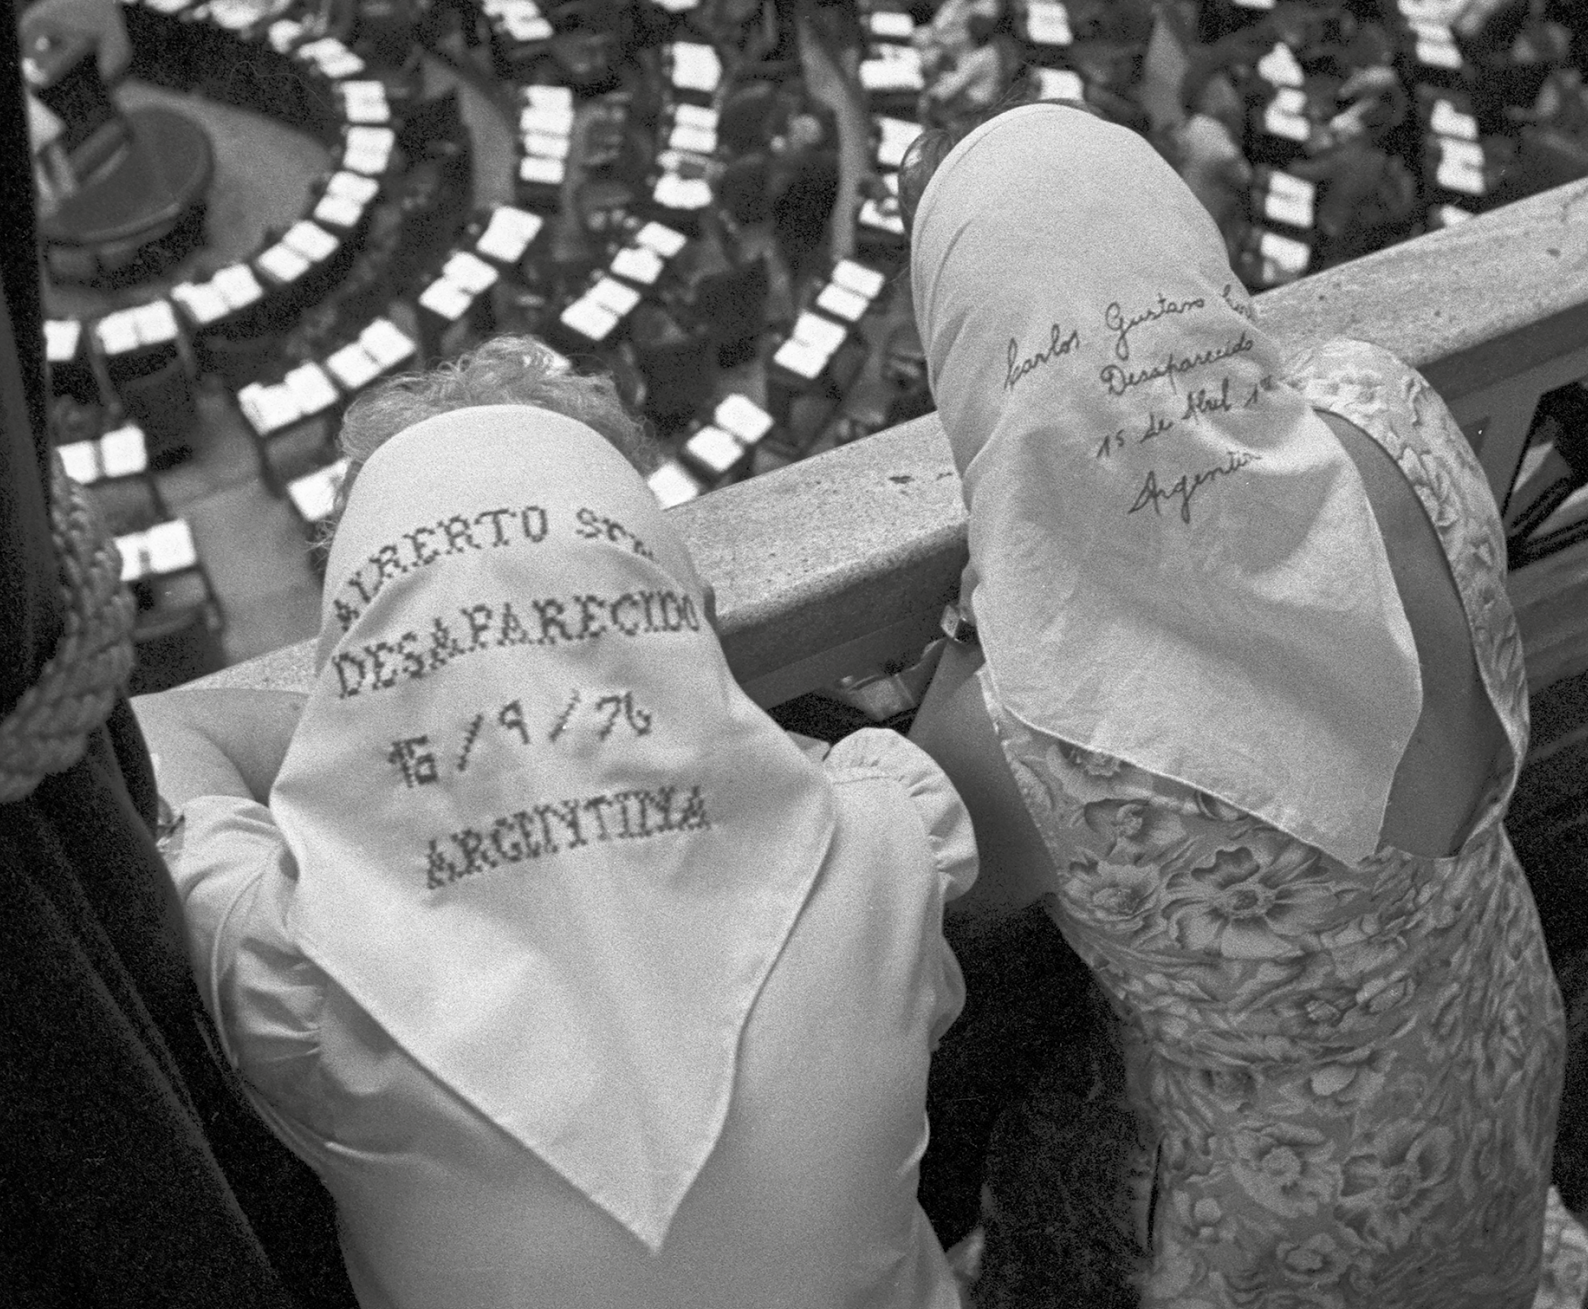 ALBERTO
DESAPARECIDO
15/9/76
ARGENTINA
Carlos Gustavo
Desaparecido
15 de Abril
Argentina